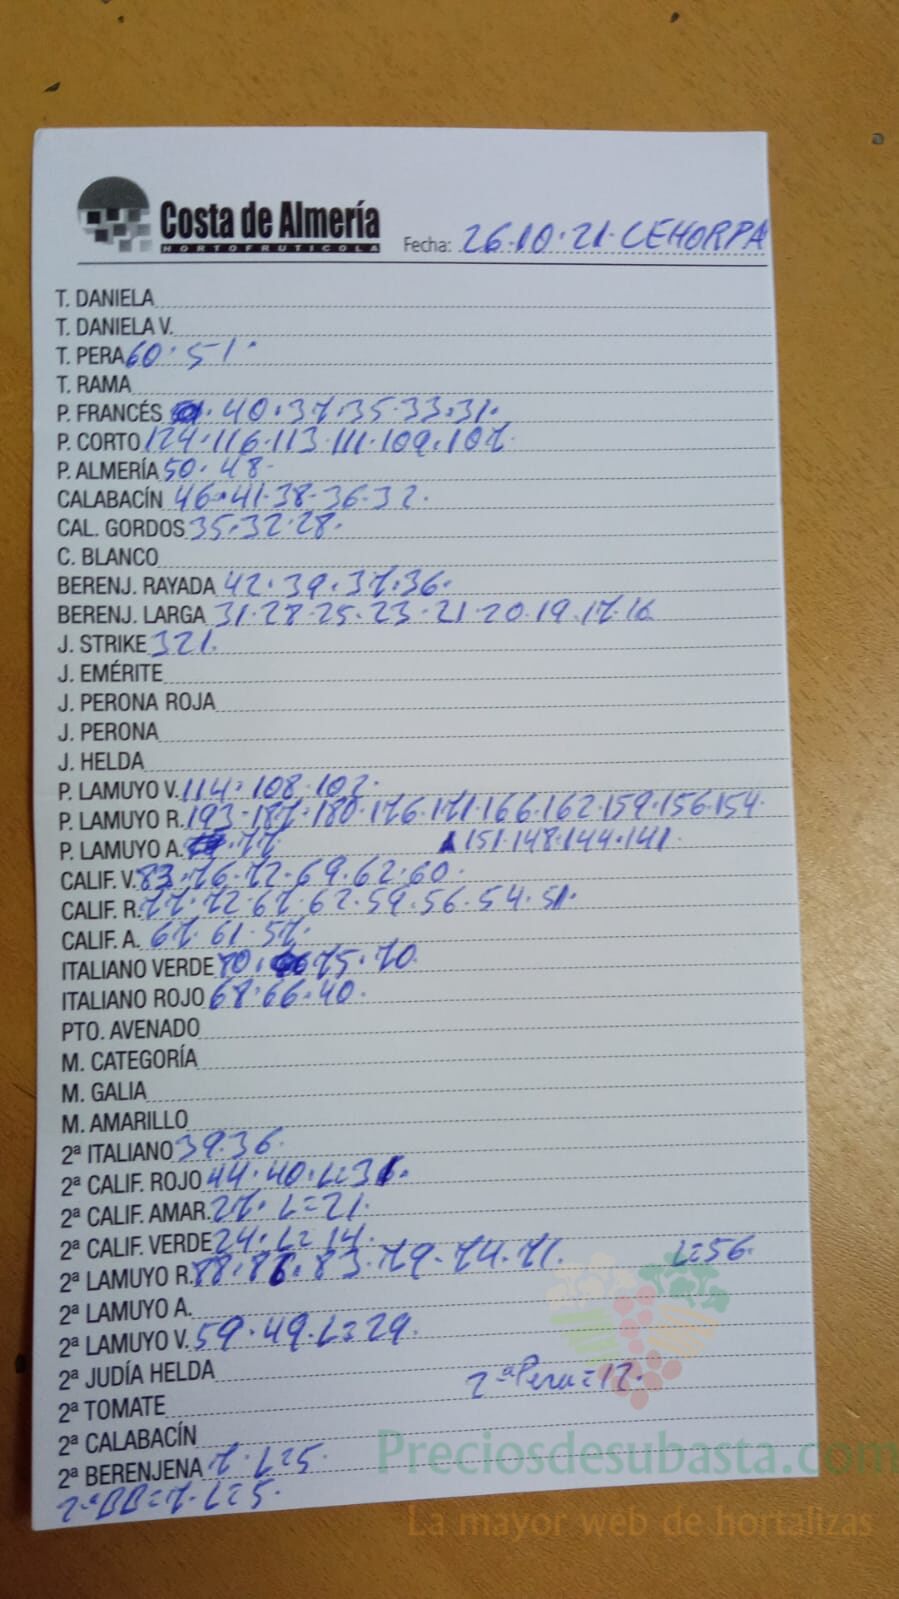 Costa de Almería
HORTOFRUTICOLA
Fecha: 26·10·21· CEHORPA
T. DANIELA
T. DANIELA V.
T. PERA 60· 51·
T. RAMA
P. FRANCÉS · 40·37·35·33·31·
P. CORTO 124·116·113·111·109·107·
P. ALMERÍA 50· 48·
CALABACÍN 46·41·38·36·32·
CAL. GORDOS 35·32·28·
C. BLANCO
BERENJ. RAYADA 42·39·37·36·
BERENJ. LARGA 31·28·25·23·21·20·19·17·16
J. STRIKE 321·
J. EMÉRITE
J. PERONA ROJA
J. PERONA
J. HELDA
P. LAMUYO V. 114·108·102·
P. LAMUYO R. 193·187·180·176·171·166·162·159·156·154·
P. LAMUYO A. ·77 151·148·144·141
CALIF. V. 83·76·72·69·62·60·
CALIF. R. 77·72·67·62·59·56·54·51·
CALIF. A. 67·61·57·
ITALIANO VERDE 80· 75·70·
ITALIANO ROJO 68·66·40·
PTO. AVENADO
M. CATEGORÍA
M. GALIA
M. AMARILLO
2ª ITALIANO 39·36·
2ª CALIF. ROJO 44·40·L=31·
2ª CALIF. AMAR. 27· L=21·
2ª CALIF. VERDE 24· L=14·
2ª LAMUYO R. 88·86·83·79·74·71· L=56·
2ª LAMUYO A.
2ª LAMUYO V. 59·49·L=29·
2ª JUDÍA HELDA 2ª Pera=12·
2ª TOMATE
2ª CALABACÍN
2ª BERENJENA 7· L=5·
2ªBB=7·L=5·
Preciosdesubasta.com
La mayor web de hortalizas